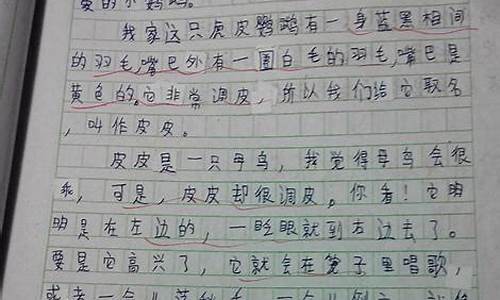 爱的小鹦鹉。
我家这只虎皮鹦鹉有一身蓝黑相间
的羽毛,嘴巴外有一圈白毛的羽毛,嘴巴是
黄色的。它非常调皮,所以我们给它取名
,叫作皮皮。
皮皮是一只母鸟,我觉得母鸟会很
乖,可是,皮皮却很调皮。你看!它明
明是在左边的,一眨眼就到右边去了。
要是它高兴了,它就会在笼子里唱歌,
或者一会儿荡秋千,一会儿倒立